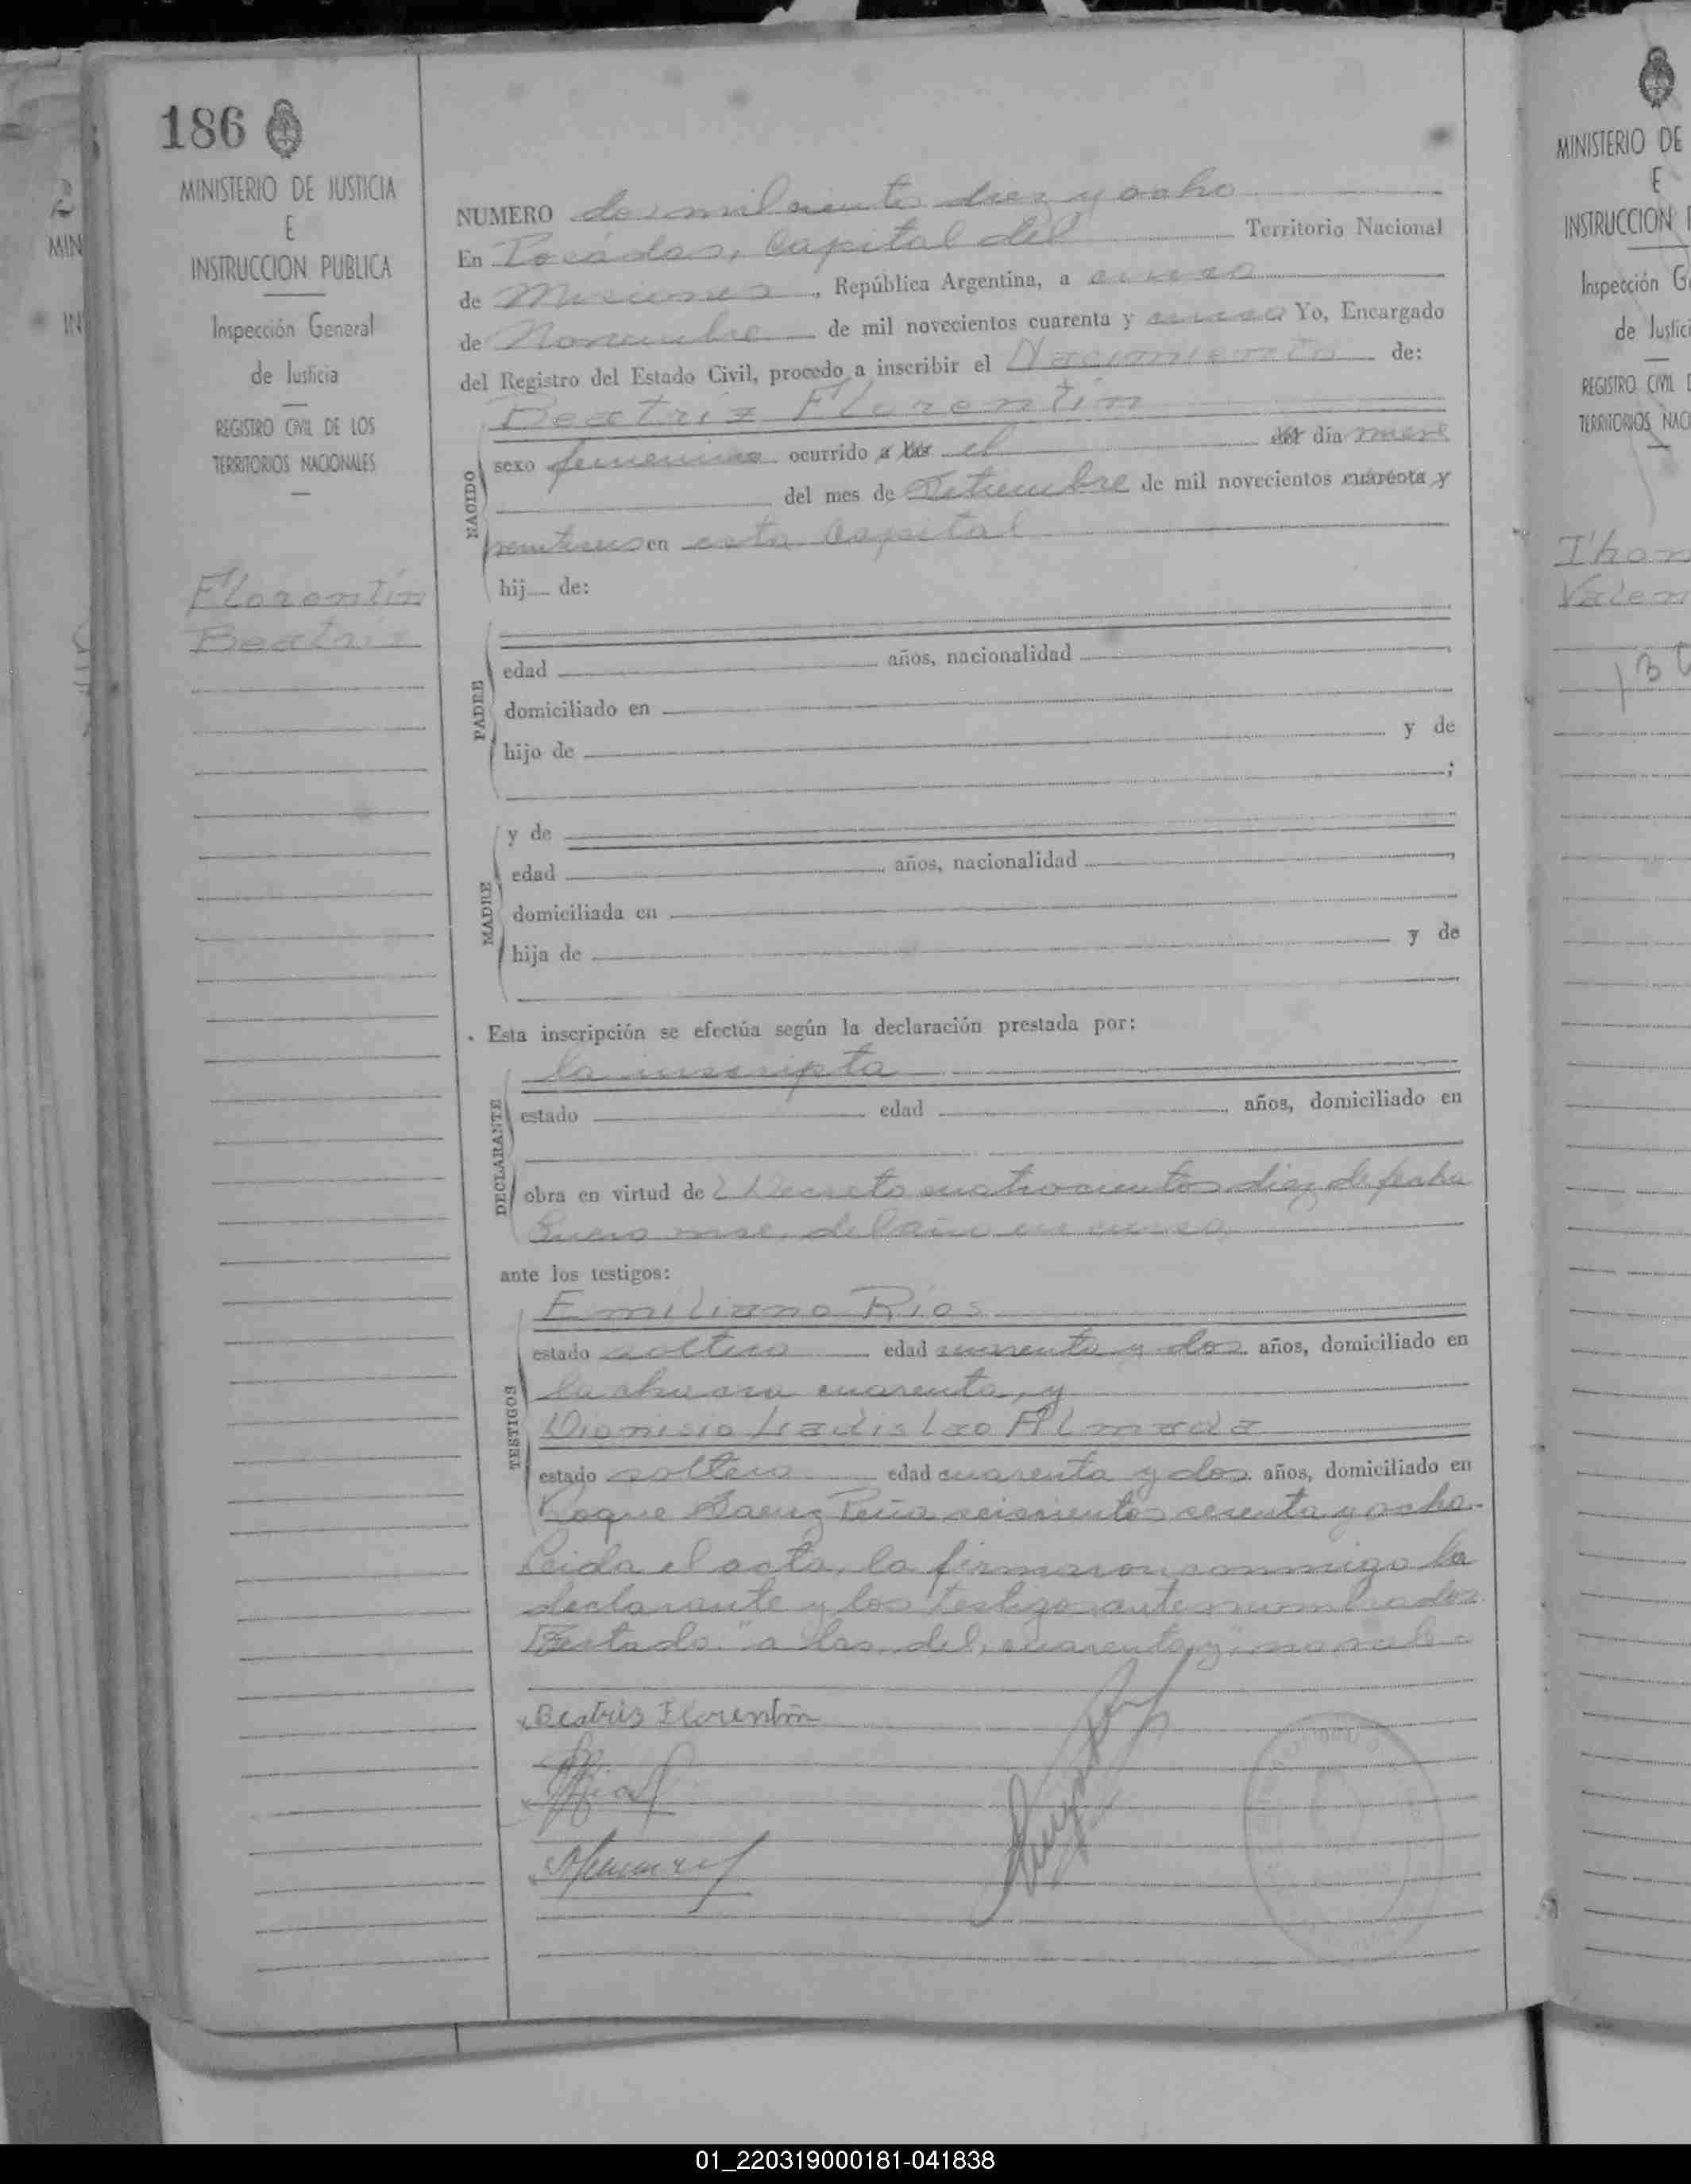 186
MINISTERIO DE JUSTICIA
E
INSTRUCCION PUBLICA
Inspección General
de Justicia
REGISTRO CIVIL DE LOS
TERRITORIOS NACIONALES
Florentín
Beatriz
NUMERO dos mil ciento diez y ocho
En Posadas, Capital del Territorio Nacional
de Misiones, República Argentina, a cinco
de Noviembre de mil novecientos cuarenta y cinco Yo, Encargado
del Registro del Estado Civil, procedo a inscribir el Nacimiento de:
Beatriz Florentín
NACIDO
sexo femenino ocurrido a las el del día nueve
del mes de Setiembre de mil novecientos cuarenta y
en esta Capital
hij de:
PADRE
edad años, nacionalidad
domiciliado en
hijo de y de
;
MADRE
y de
edad años, nacionalidad
domiciliada en
hija de y de
Esta inscripción se efectúa según la declaración prestada por:
DECLARANTE
la inscripta
estado edad años, domiciliado en
obra en virtud de Decreto cuatrocientos diez de fecha
Enero once del año en curso
ante los testigos:
TESTIGOS
Emiliano Ríos
estado soltero edad cuarenta y dos años, domiciliado en
la chacra cuarenta, y
Dionisio Ladislao Almada
estado soltero edad cuarenta y dos años, domiciliado en
Roque Saenz Peña seiscientos y ocho.-
Leida el acta, la firmaron conmigo la
declarante y los testigos antes nombrados
Testado: "a las, del, cuarenta y", no vale-
Beatriz Florentín
MINISTERIO DE
E
INSTRUCCION
Inspección
de
REGISTRO CIVIL
TERRITORIOS
01_220319000181-041838